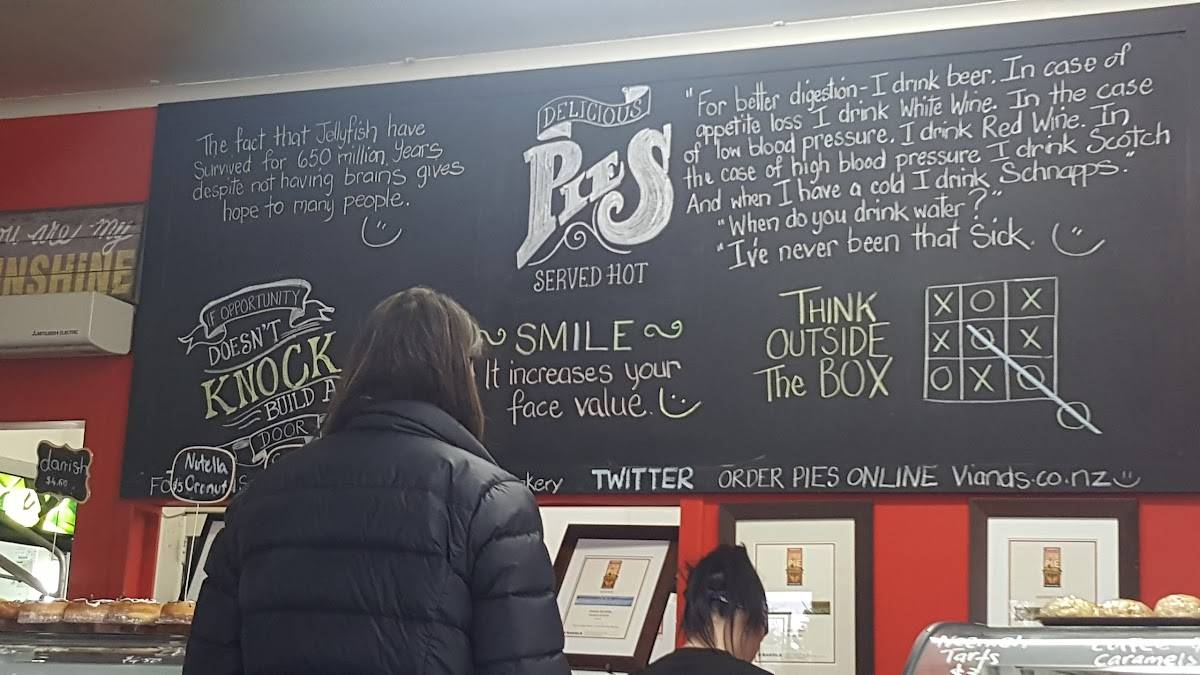 The fact that Jellyfish have
Survived for 650 million years
despite not having brains gives
hope to many people.
DELICIOUS
PIES
SERVED HOT
"For better digestion - I drink beer. In case of
appetite loss I drink White Wine. In the case
of low blood pressure. I drink Red Wine. In
the case of high blood pressure I drink Scotch
And when I have a cold I drink Schnapps."
"When do you drink water?"
"I've never been that Sick.
my
UNSHINE
MITSUBISHI ELECTRIC
IF OPPORTUNITY
DOESN'T
KNOCK
BUILD A
DOOR
SMILE
It increases your
face value.
THINK
OUTSIDE
The BOX
X O X
X O X
O X O
O
danish
$4.60
Nutella
Cronut
TWITTER ORDER PIES ONLINE Viands.co.nz
PIE
PIE
Tarts
Caramels